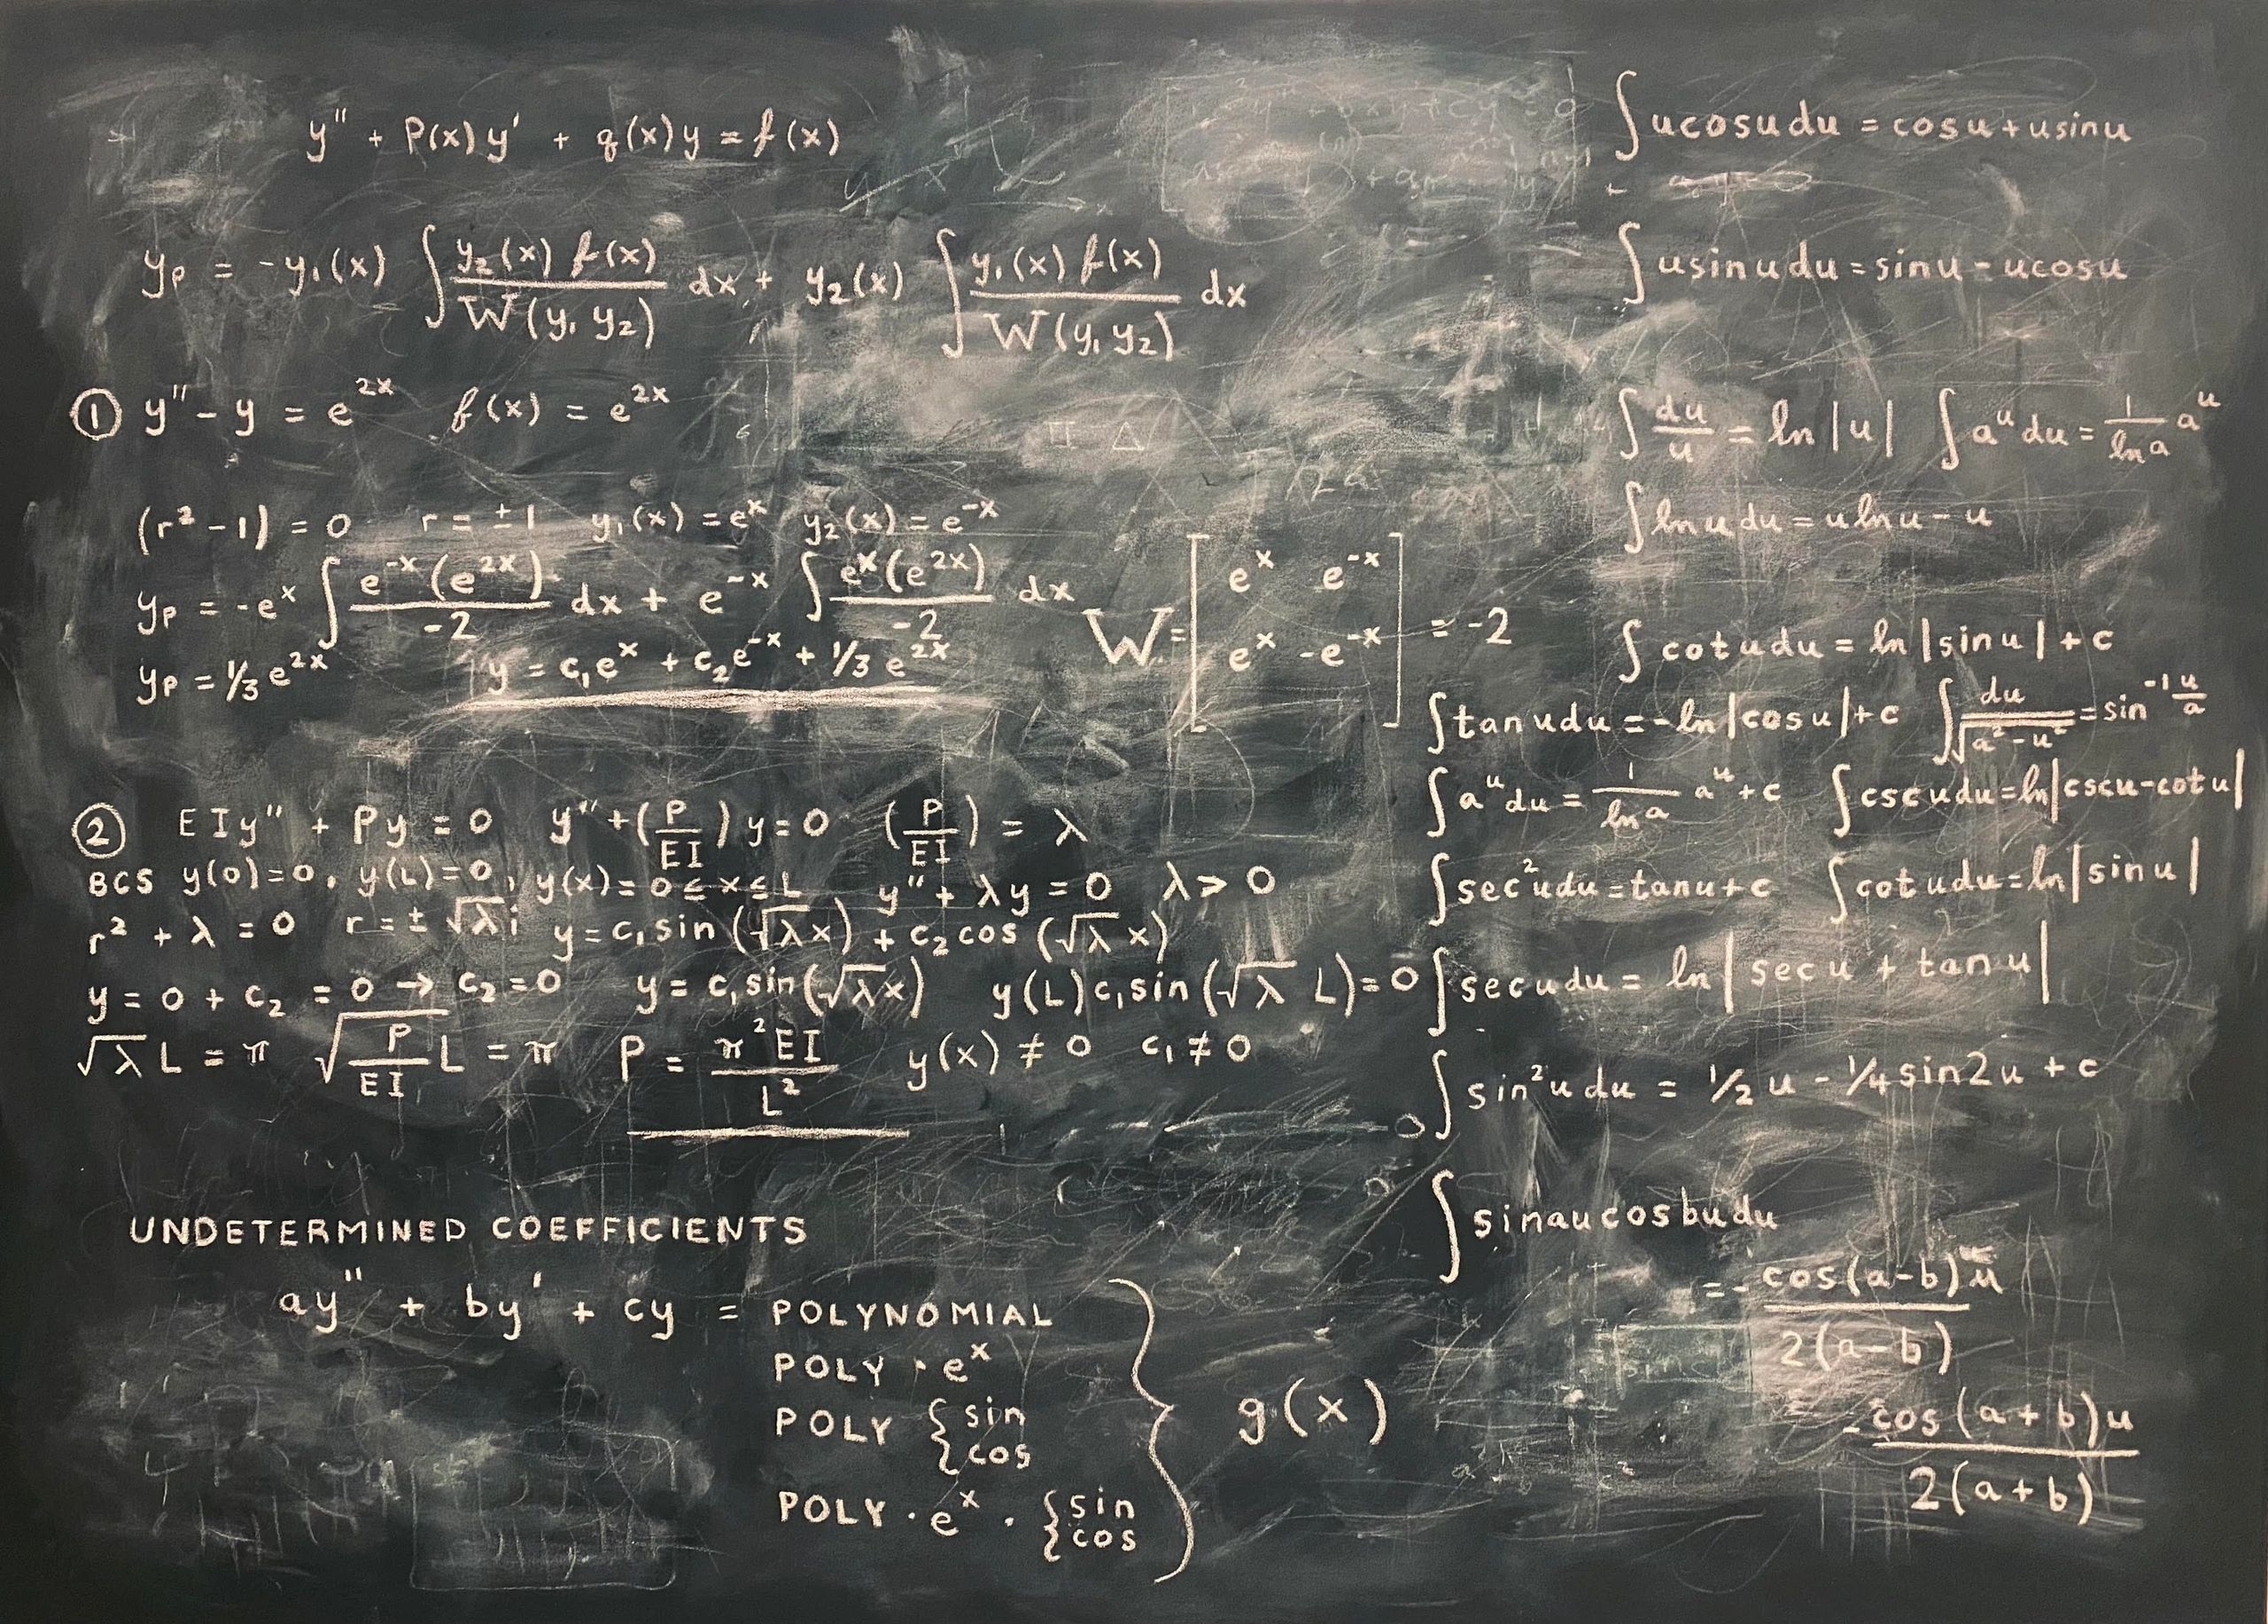 y'' + P(x)y' + q(x)y = f(x)
yp = -y₁(x) ∫ y₂(x) f(x) / W(y₁ y₂) dx + y₂(x) ∫ y₁(x) f(x) / W(y₁ y₂) dx
① y'' - y = e^2x f(x) = e^2x
(r² - 1) = 0 r = ± 1 y₁(x) = e^x y₂(x) = e^-x
yp = -e^x ∫ e^-x (e^2x) / -2 dx + e^-x ∫ e^x (e^2x) / -2 dx
W = [ e^x e^-x
e^x -e^-x ] = -2
yp = 1/3 e^2x y = c₁e^x + c₂e^-x + 1/3 e^2x
② EIy'' + Py = 0 y'' + (P/EI) y = 0 (P/EI) = λ
BCS y(0)=0, y(L)=0, y(x)= 0 ≤ x ≤ L y'' + λy = 0 λ > 0
r² + λ = 0 r = ± √λ i y = c₁ sin (√λ x) + c₂ cos (√λ x)
y = 0 + c₂ = 0 → c₂ = 0 y = c₁ sin (√λ x) y(L) c₁ sin (√λ L) = 0
√λ L = π √(P/EI) L = π P = π² EI / L² y(x) ≠ 0 c₁ ≠ 0
UNDETERMINED COEFFICIENTS
ay'' + by' + cy = POLYNOMIAL
POLY · e^x
POLY { sin
cos
POLY · e^x · { sin
cos
} g(x)
∫ u cos u du = cos u + u sin u
∫ u sin u du = sin u - u cos u
∫ du/u = ln |u| ∫ a^u du = 1/ln a a^u
∫ ln u du = u ln u - u
∫ cot u du = ln |sin u| + c
∫ tan u du = -ln |cos u| + c ∫ du / √(a² - u²) = sin^-1 u/a
∫ a^u du = 1/ln a a^u + c ∫ csc u du = ln |csc u - cot u|
∫ sec² u du = tan u + c ∫ cot u du = ln |sin u|
∫ sec u du = ln | sec u + tan u |
∫ sin² u du = 1/2 u - 1/4 sin 2u + c
∫ sin au cos bu du
= - cos (a-b) u / 2(a-b)
- cos (a+b) u / 2(a+b)